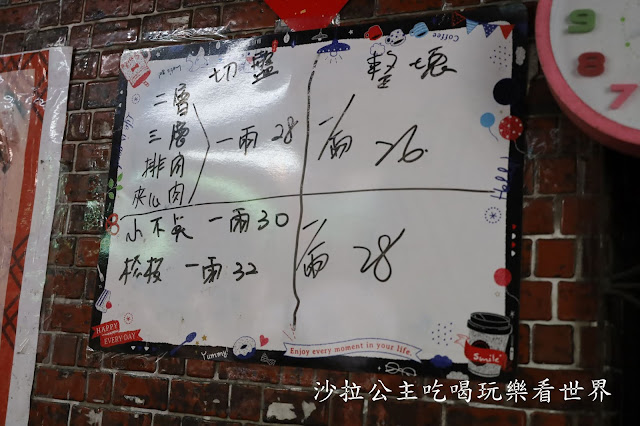 切盤 整塊
二層
三層
排肉
夾心肉
一兩 28
一兩 26.
小不戾 一兩 30
松板 一兩 32
一兩 28
Coffee
HAPPY
EVERY DAY
Yummy!
Enjoy every moment in your life.
Smile
9
8
7
沙拉公主吃喝玩樂看世界